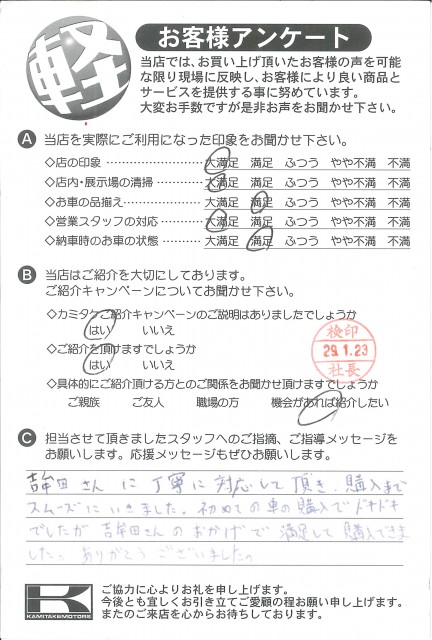 軽
お客様アンケート
当店では、お買い上げ頂いたお客様の声を可能
な限り現場に反映し、お客様により良い商品と
サービスを提供する事に努めています。
大変お手数ですが是非お声をお聞かせ下さい。
A 当店を実際にご利用になった印象をお聞かせ下さい。
◇店の印象 ……………………… 大満足 満足 ふつう やや不満 不満
◇店内・展示場の清掃 ………… 大満足 満足 ふつう やや不満 不満
◇お車の品揃え ………………… 大満足 満足 ふつう やや不満 不満
◇営業スタッフの対応 ………… 大満足 満足 ふつう やや不満 不満
◇納車時のお車の状態 ………… 大満足 満足 ふつう やや不満 不満
B 当店はご紹介を大切にしております。
ご紹介キャンペーンについてお聞かせ下さい。
◇カミタケご紹介キャンペーンのご説明はありましたでしょうか
はい いいえ
◇ご紹介を頂けますでしょうか
はい いいえ
検印
29.1.23
社長
◇具体的にご紹介頂ける方とのご関係をお聞かせ頂けますでしょうか
ご親族 ご友人 職場の方 機会があれば紹介したい
C 担当させて頂きましたスタッフへのご指摘、ご指導メッセージを
お願いします。応援メッセージもぜひお願いします。
さんに丁寧に対応して頂き、購入まで
スムーズにいきました。初めての車の購入でドキドキ
でしたが さんのおかげで満足して購入できま
した。ありがとうございました。
K
KAMITAKEMOTORS
ご協力に心よりお礼を申し上げます。
今後とも宜しくお引き立てご愛顧の程お願い申し上げます。
またのご来店を心からお待ちしております。